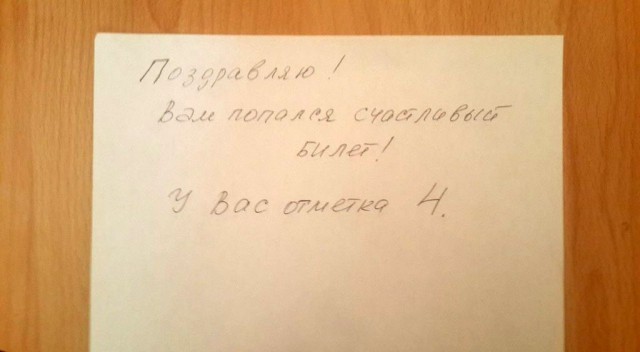 Поздравляю!
Вам попался счастливый
билет!
У Вас отметка 4.